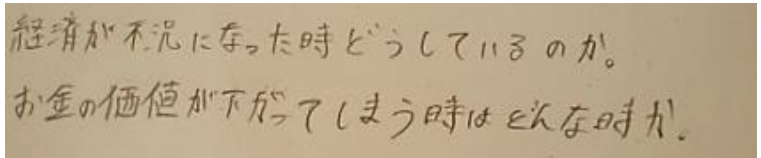 経済が不況になった時どうしているのか。
お金の価値が下がってしまう時はどんな時か。